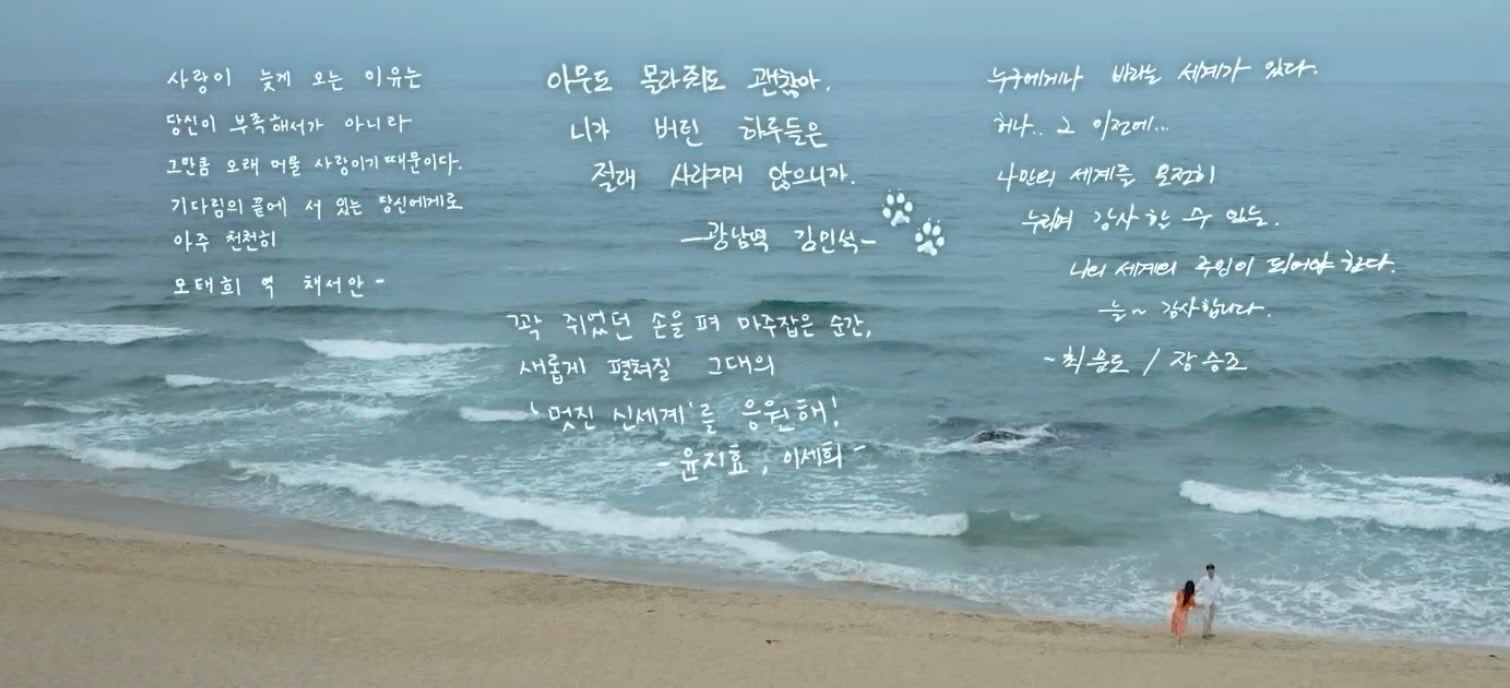 사랑이 늦게 오는 이유는
당신이 부족해서가 아니라
그만큼 오래 머물 사랑이기 때문이다.
기다림의 끝에 서 있는 당신에게로
아주 천천히
모태희 역 채서안-
아무도 몰라줘도 괜찮아.
니가 버틴 하루들은
절대 사라지지 않으니까.
-광남역 김민석-
꽉 쥐었던 손을 펴 마주잡은 순간,
새롭게 펼쳐질 그대의
'멋진 신세계'를 응원해!
-윤지효, 이세희-
누구에게나 바라는 세계가 있다.
허나.. 그 이전에...
나만의 세계를 온전히
누리며 감사 할 수 있는.
나의 세계의 주인이 되어야 한다.
늘~ 감사합니다.
-최문도 / 장승조